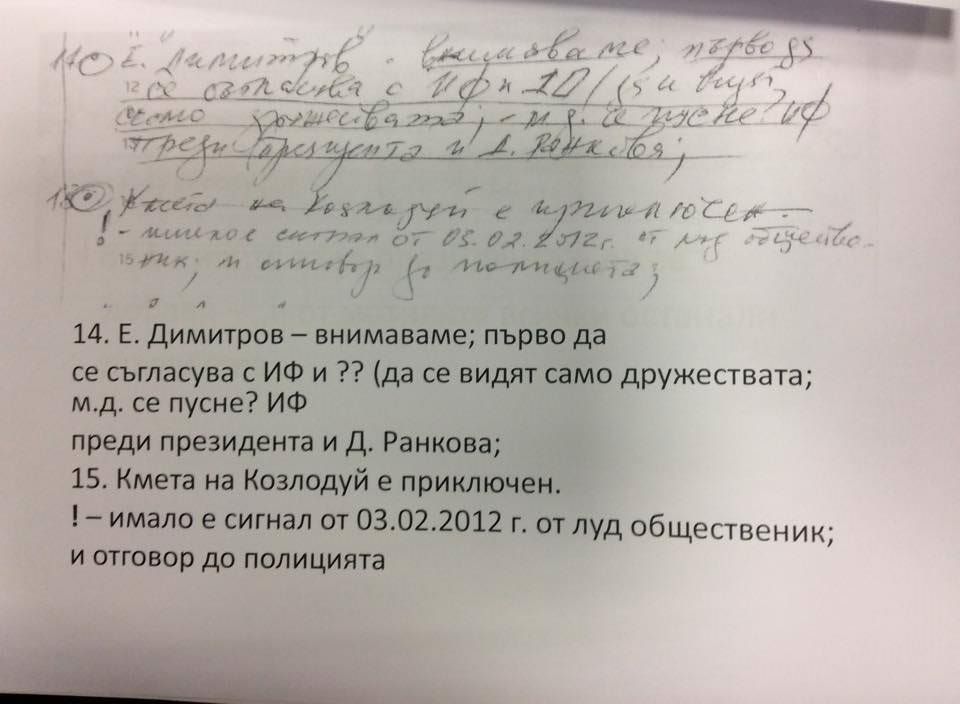 "Е. Димитров" - внимаваме; първо да
се съгласува с ИФ и
само дружествата; - м.д. се пусне? ИФ
преди президента и Д. Ранкова;
Кмета на Козлодуй е приключен.
! - имало е сигнал от 03.02.2012г. от луд обществе-
15 ник; и отговор до полицията;
14. Е. Димитров – внимаваме; първо да
се съгласува с ИФ и ?? (да се видят само дружествата;
м.д. се пусне? ИФ
преди президента и Д. Ранкова;
15. Кмета на Козлодуй е приключен.
! – имало е сигнал от 03.02.2012 г. от луд общественик;
и отговор до полицията